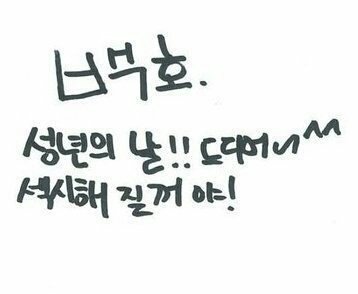 백호.
성년의 날!! 드디어 ^^
섹시해 질꺼 야!